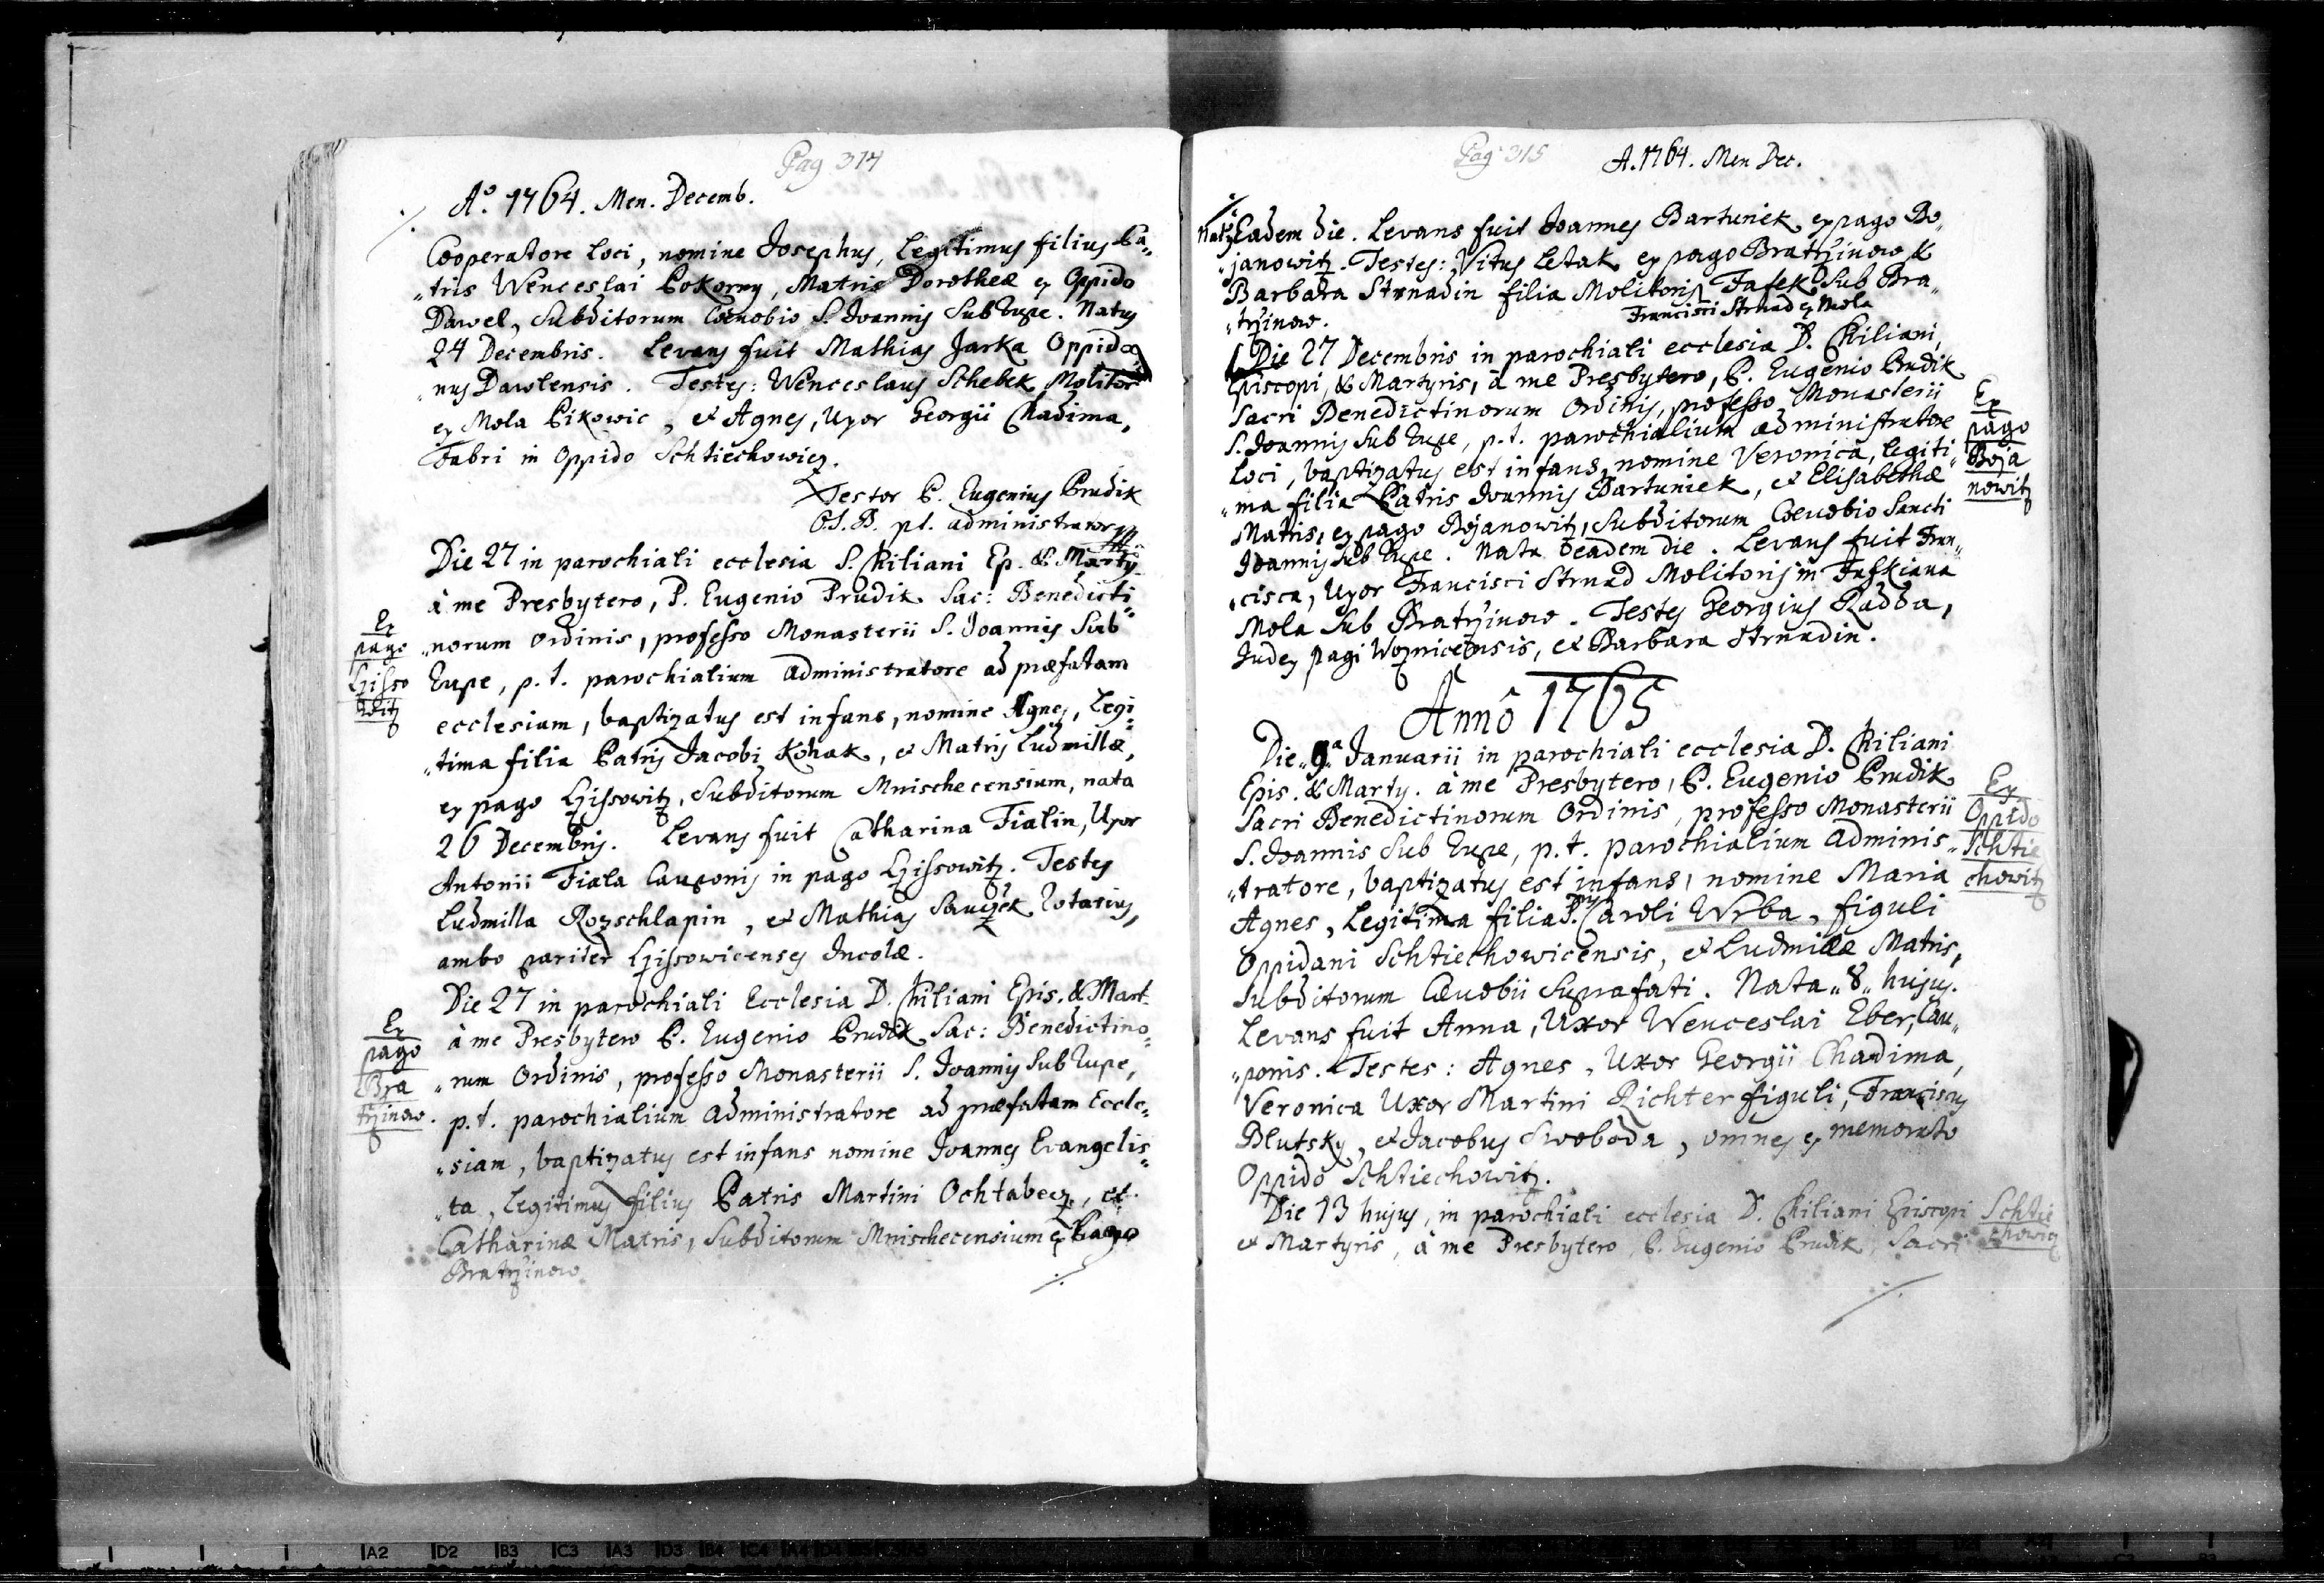 Pag 314
Aº. 1764. Men. Decemb.
Cooperatore loci, nomine Josephus, Legitimus filius Pa„
„tris Wenceslai Pokorny, Matris Dorotheæ ex Oppido
Dawel, Subditorum Cœnobio S. Joannis Sub Rupe. Natus
24 Decembris. Levans fuit Mathias Jarka Oppida„
„nus Dawlensis. Testes: Wenceslaus Schebek Molitor
ex Mola Pikowic, et Agnes, Uxor Georgii Chadima,
Fabri in Oppido Schtiechowicz.
Testor P. Eugenius Prudik
O.S.B. p.t. administrator
Die 27 in parochiali ecclesia S. Kiliani Ep. & Marty
à me Presbytero, P. Eugenio Prudik Sac: Benedicti„
Ex
pago
Hisso
witz
„norum Ordinis, professo Monasterii S. Joannis Sub
Rupe, p.t. parochialium Administratore ad præfatam
ecclesiam, baptizatus est infans, nomine Agnes, Legi„
„tima filia Patris Jacobi Kohak, et Matris Ludmillæ,
ex pago Hissowitz, Subditorum Mnischecensium, nata
26 Decembris. Levans fuit Catharina Fialin, Uxor
Antonii Fiala Cauponis in pago Hissowitz. Testes
Ludmilla Rozschlapin, et Mathias Sauczek Rotarius,
ambo pariter Hissowicenses Incolæ.
Die 27 in parochiali Ecclesia D. Kiliani Epis. & Mart.
Ex
pago
Bra
trzinow.
à me Presbytero P. Eugenio Prudik Sac: Benedictino„
„rum Ordinis, professo Monasterii S. Joannis Sub Rupe,
p.t. parochialium Administratore ad præfatam Eccle„
„siam, baptizatus est infans nomine Joannes Evangelis„
„ta, Legitimus filius Patris Martini Ochtabecz, et
Catharinæ Matris, Subditorum Mnischecensium ex Pago
Bratrzinow
Pag 315
A. 1764. Men Dec.
Natus Eadem die. Levans fuit Joannes Bartuniek ex pago Bo„
„janowitz. Testes: Vitus Letak ex pago Bratrzinow &
Barbara Strnadin filia Molitoris Fasek Sub Bra„
Francisci Strnad ex Mola
„trzinow.
Die 27 Decembris in parochiali ecclesia D. Kiliani,
Episcopi, & Martyris, à me Presbytero, P. Eugenio Prudik
Sacri Benedictinorum Ordinis, professo Monasterii
S. Joannis Sub Rupe, p.t. parochialium administratore
Ex
pago
Boja
nowitz
loci, baptizatus est infans, nomine Veronica, legiti„
„ma filia Patris Joannis Bartuniek, et Elisabethæ
Matris, ex pago Bojanowitz, Subditorum Cœnobio Sancti
Joannis Sub Rupe. Nata eadem die. Levans fuit Fran„
„cisca, Uxor Francisci Strnad Molitoris in Faskiana
Mola Sub Bratrzinow. Testes Georgius Radda,
Judex pagi Woznicensis, et Barbara Strnadin.
Annô 1765
Die „9ª Januarii in parochiali ecclesia D. Kiliani
Epis. & Marty. à me Presbytero, P. Eugenio Prudik
Sacri Benedictinorum Ordinis, professo Monasterii
S. Joannis Sub Rupe, p.t. parochialium Adminis„
Ex
Oppido
Schtie
chowitz
„tratore, baptizatus est infans, nomine Maria
Agnes, Legitima filia P. Caroli Wrba, figuli
Oppidani Schtiechowicensis, et Ludmillæ Matris,
Subditorum Cœnobii Suprafati. Nata „8„ hujus.
Levans fuit Anna, Uxor Wenceslai Eber, Cau„
„ponis. Testes: Agnes, Uxor Georgii Chadima,
Veronica Uxor Martini Richter figuli, Franciscus
Blutsky, et Jacobus Swoboda, omnes ex memorato
Oppido Schtiechowitz.
Die 13 hujus, in parochiali ecclesia D. Kiliani Episcopi
et Martyris, à me Presbytero, P. Eugenio Prudik, Sacri
Schtie
chowicz
A2 D2 B3 C3 A3 D3 B4 C4 A4